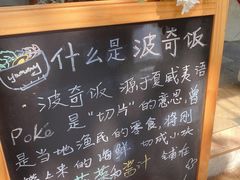 yummy
什么是波奇饭
·波奇饭 源于夏威夷语
Poke 是“切片”的意思,曾
是当地渔民的零食,将刚
上来的海鲜切成小块
酱汁 铺在